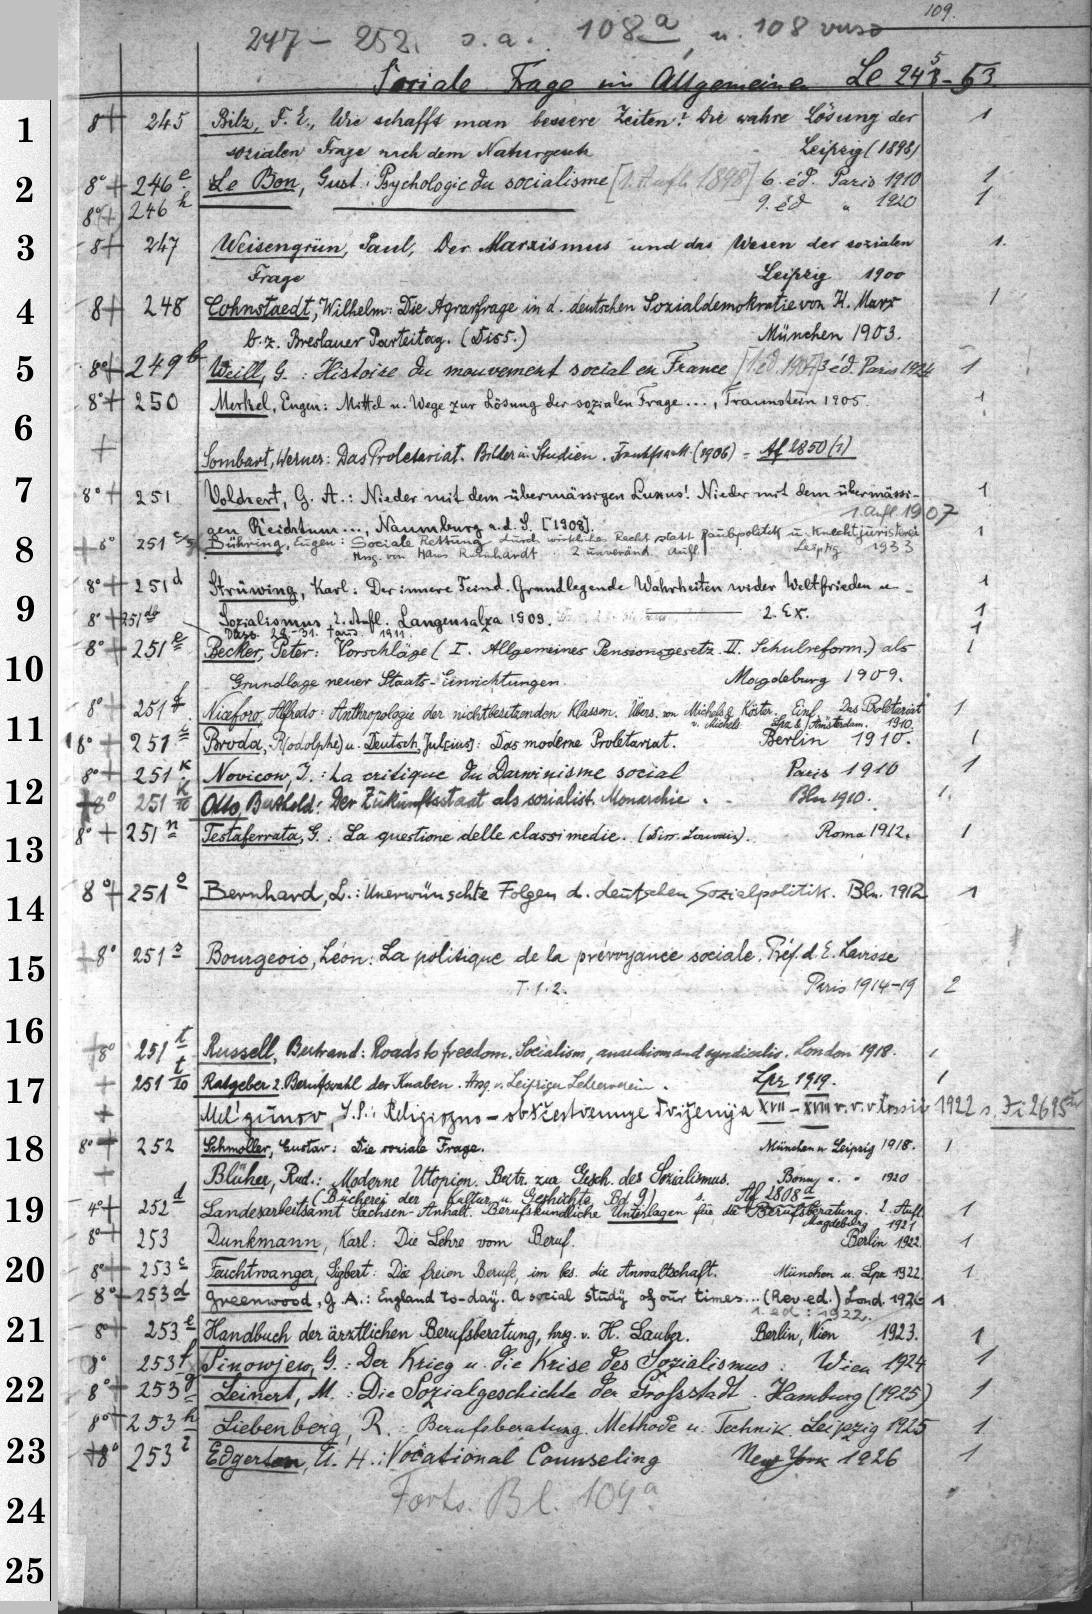 109.
247 - 252. s. a. 108a, u. 108 verso
Soziale Frage im Allgemeinen Le 245-53.
1 8°+ 245 Bilz, F. E., Wie schafft man bessere Zeiten? Die wahre Lösung der 1
sozialen Frage nach dem Naturgesetz Leipzig (1898)
2 8°+ 246e Le Bon, Gust.: Psychologie du socialisme [1. Aufl. 1898] 6. éd. Paris 1910 1
8°+ 246h 9. éd " 1920 1
3 8°+ 247 Weisengrün, Paul, Der Marxismus und das Wesen der sozialen 1.
Frage Leipzig 1900
4 8°+ 248 Cohnstaedt, Wilhelm: Die Agrarfrage in d. deutschen Sozialdemokratie von K. Marx 1
b. z. Breslauer Parteitag. (Diss.) München 1903.
5 8°+ 249b Weill, G.: Histoire du mouvement social en France [1. éd. 1904] 3 éd. Paris 1924 1
8°+ 250 Merkel, Eugen: Mittel u. Wege zur Lösung der sozialen Frage..., Traunstein 1905. 1
6
+ Sombart, Werner: Das Proletariat. Bilder u. Studien. Frankfurt a. M. (1906) = Af 2850 (1)
7 8°+ 251 Volkert, G. A.: Nieder mit dem übermässigen Luxus! Nieder mit dem übermässi- 1
1. Aufl. 1907
gen Reichtum..., Naumburg a. d. S. [1908].
8 +8° 251 Dühring, Eugen: Soziale Rettung durch wirkliches Recht statt Raubpolitik u. Knechtjuristerei 1
Hrsg. von Hans Reinhardt. 2 unveränd. Aufl. Leipzig 1933
8°+ 251d Strüwing, Karl: Der innere Feind. Grundlegende Wahrheiten wider Weltfrieden u. 1
9 8°+ 251da Sozialismus, 2. Aufl. Langensalza 1909. 2. Ex. 1
Dass. 29.-31. Taus. 1911. 1
8°+ 251e Becker, Peter: Vorschläge (I. Allgemeines Pensionsgesetz. II. Schulreform.) als 1
10 Grundlage neuer Staats-Einrichtungen. Magdeburg 1909.
8°+ 251f Niceforo, Alfredo: Anthropologie der nichtbesitzenden Klassen. Übers. von Michels & Köster. Einf. Das Proletariat 1
v. Michels Lpz. & Amsterdam. 1910.
11 8°+ 251g Broda, R(odolphe) u. Deutsch, Jul(ius): Das moderne Proletariat. Berlin 1910. 1
8°+ 251k Novicow, J.: La critique du Darwinisme social Paris 1910 1
12 +8° 251k/10 Otto, Berthold: Der Zukunftsstaat als sozialist. Monarchie. Bln 1910. 1.
13 8°+ 251n Testaferrata, G.: La questione delle classi medie. (Diss. Louvain). Roma 1912. 1
14 8°+ 251o Bernhard, L.: Unerwünschte Folgen d. deutschen Sozialpolitik. Bln. 1912 1
15 +8° 251s Bourgeois, Léon: La politique de la prévoyance sociale. Préf. d. E. Lavisse
T. 1. 2. Paris 1914-19 2
16
+8° 251t Russell, Bertrand: Roads to freedom. Socialism, anarchism and syndicalis. London 1918. 1
17 + 251t/10 Ratgeber z. Berufswahl der Knaben. Hrsg. v. Leipziger Lehrerverein. Lpz 1919. 1
+ Mel'gunov, S. P.: Religiozno-obščestvennye dviženija XVII-XVIII v. v. v Rossii 1922 s.
18 8°+ 252 Schmoller, Gustav: Die soziale Frage. München u. Leipzig 1918. 1
+ Blüher, Rud.: Moderne Utopien. Beitr. zur Gesch. des Sozialismus. Bonn 1920
(Bücherei der Kultur u. Geschichte, Bd 9) s. Af 2808d
19 4°+ 252d Landesarbeitsamt Sachsen-Anhalt. Berufskundliche Unterlagen für die Berufsberatung. 2. Aufl. 1
Magdeburg 1921
8°+ 253 Dunkmann, Karl: Die Lehre vom Beruf. Berlin 1922. 1
20 8°+ 253c Feuchtwanger, Sigbert: Die freien Berufe, im bes. die Anwaltschaft. München u. Lpz 1922. 1
8°+ 253d Greenwood, G. A.: England to-day. A social study of our times... (Rev. ed.) Lond. 1926 1
1. ed.: 1922.
21 8°+ 253e Handbuch der ärztlichen Berufsberatung, hrsg. v. H. Lauber. Berlin, Wien 1923. 1
8° 253f Sinowjew, G.: Der Krieg u. die Krise des Sozialismus. Wien 1924 1
22 8°+ 253g Leinert, M.: Die Sozialgeschichte der Großstadt. Hamburg (1925) 1
8°+ 253h Liebenberg, R.: Berufsberatung. Methode u. Technik. Leipzig 1925 1
23 +8° 253i Edgerton, A. H.: Vocational Counseling New York 1926 1
Forts. Bl. 109a
24
25